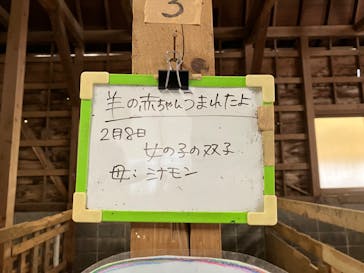 3
羊の赤ちゃんうまれたよ
2月8日
女の子の双子
母:ミナモン